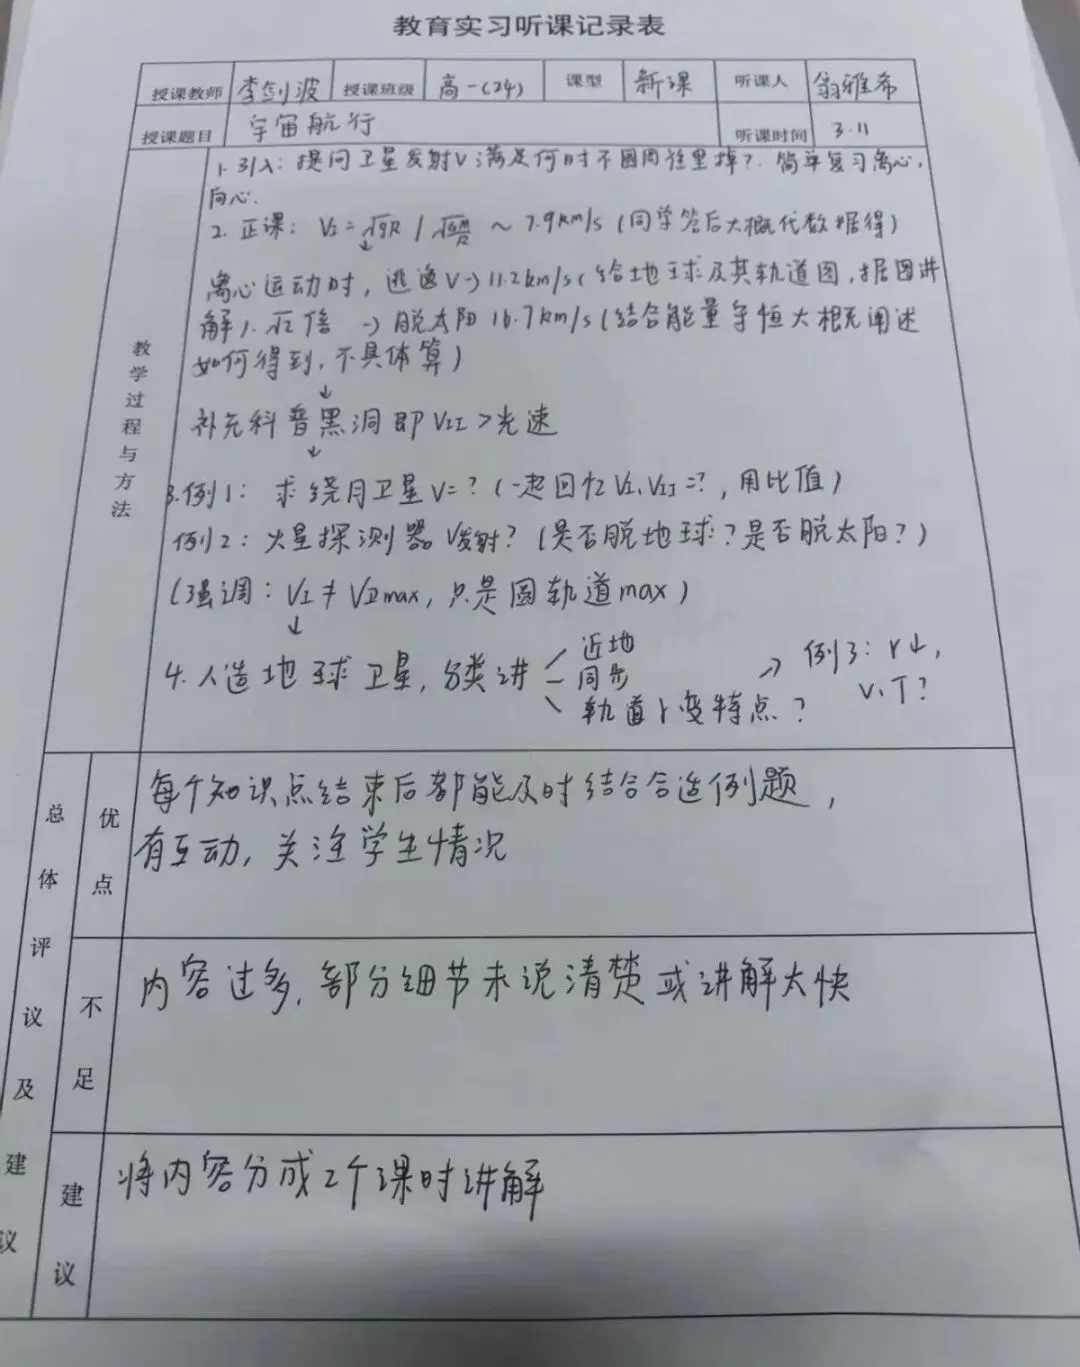 教育实习听课记录表
授课教师 李剑波 授课班级 高一(24) 课型 新课 听课人 翁雅希
授课题目 宇宙航行 听课时间 3.11
教学过程与方法
1. 引入: 提问卫星发射V满足何时不圆周往里掉? 简单复习离心,
向心.
2. 正课: VI = √gR / √GM/R ~ 7.9km/s (同学答后大概代数据得)
↓
离心运动时, 逃逸V→11.2km/s (给地球及其轨道图, 据图讲
解). √2倍 → 脱太阳 16.7km/s (结合能量守恒大概阐述
如何得到, 不具体算)
↓
补充科普黑洞即VII>光速
↓
3.例1: 求绕月卫星V=? (一起回忆VI、VII=?, 用比值)
例2: 火星探测器V发射? (是否脱地球? 是否脱太阳?)
(强调: VI≠V卫max, 只是圆轨道max)
↓
4. 人造地球卫星, 分类讲
近地
同步
轨道r变特点?
→ 例3: r↓,
v、T?
总体评议及建议
优点
每个知识点结束后都能及时结合合适例题,
有互动, 关注学生情况
不足
内容过多, 部分细节未说清楚或讲解太快
建议
将内容分成2个课时讲解